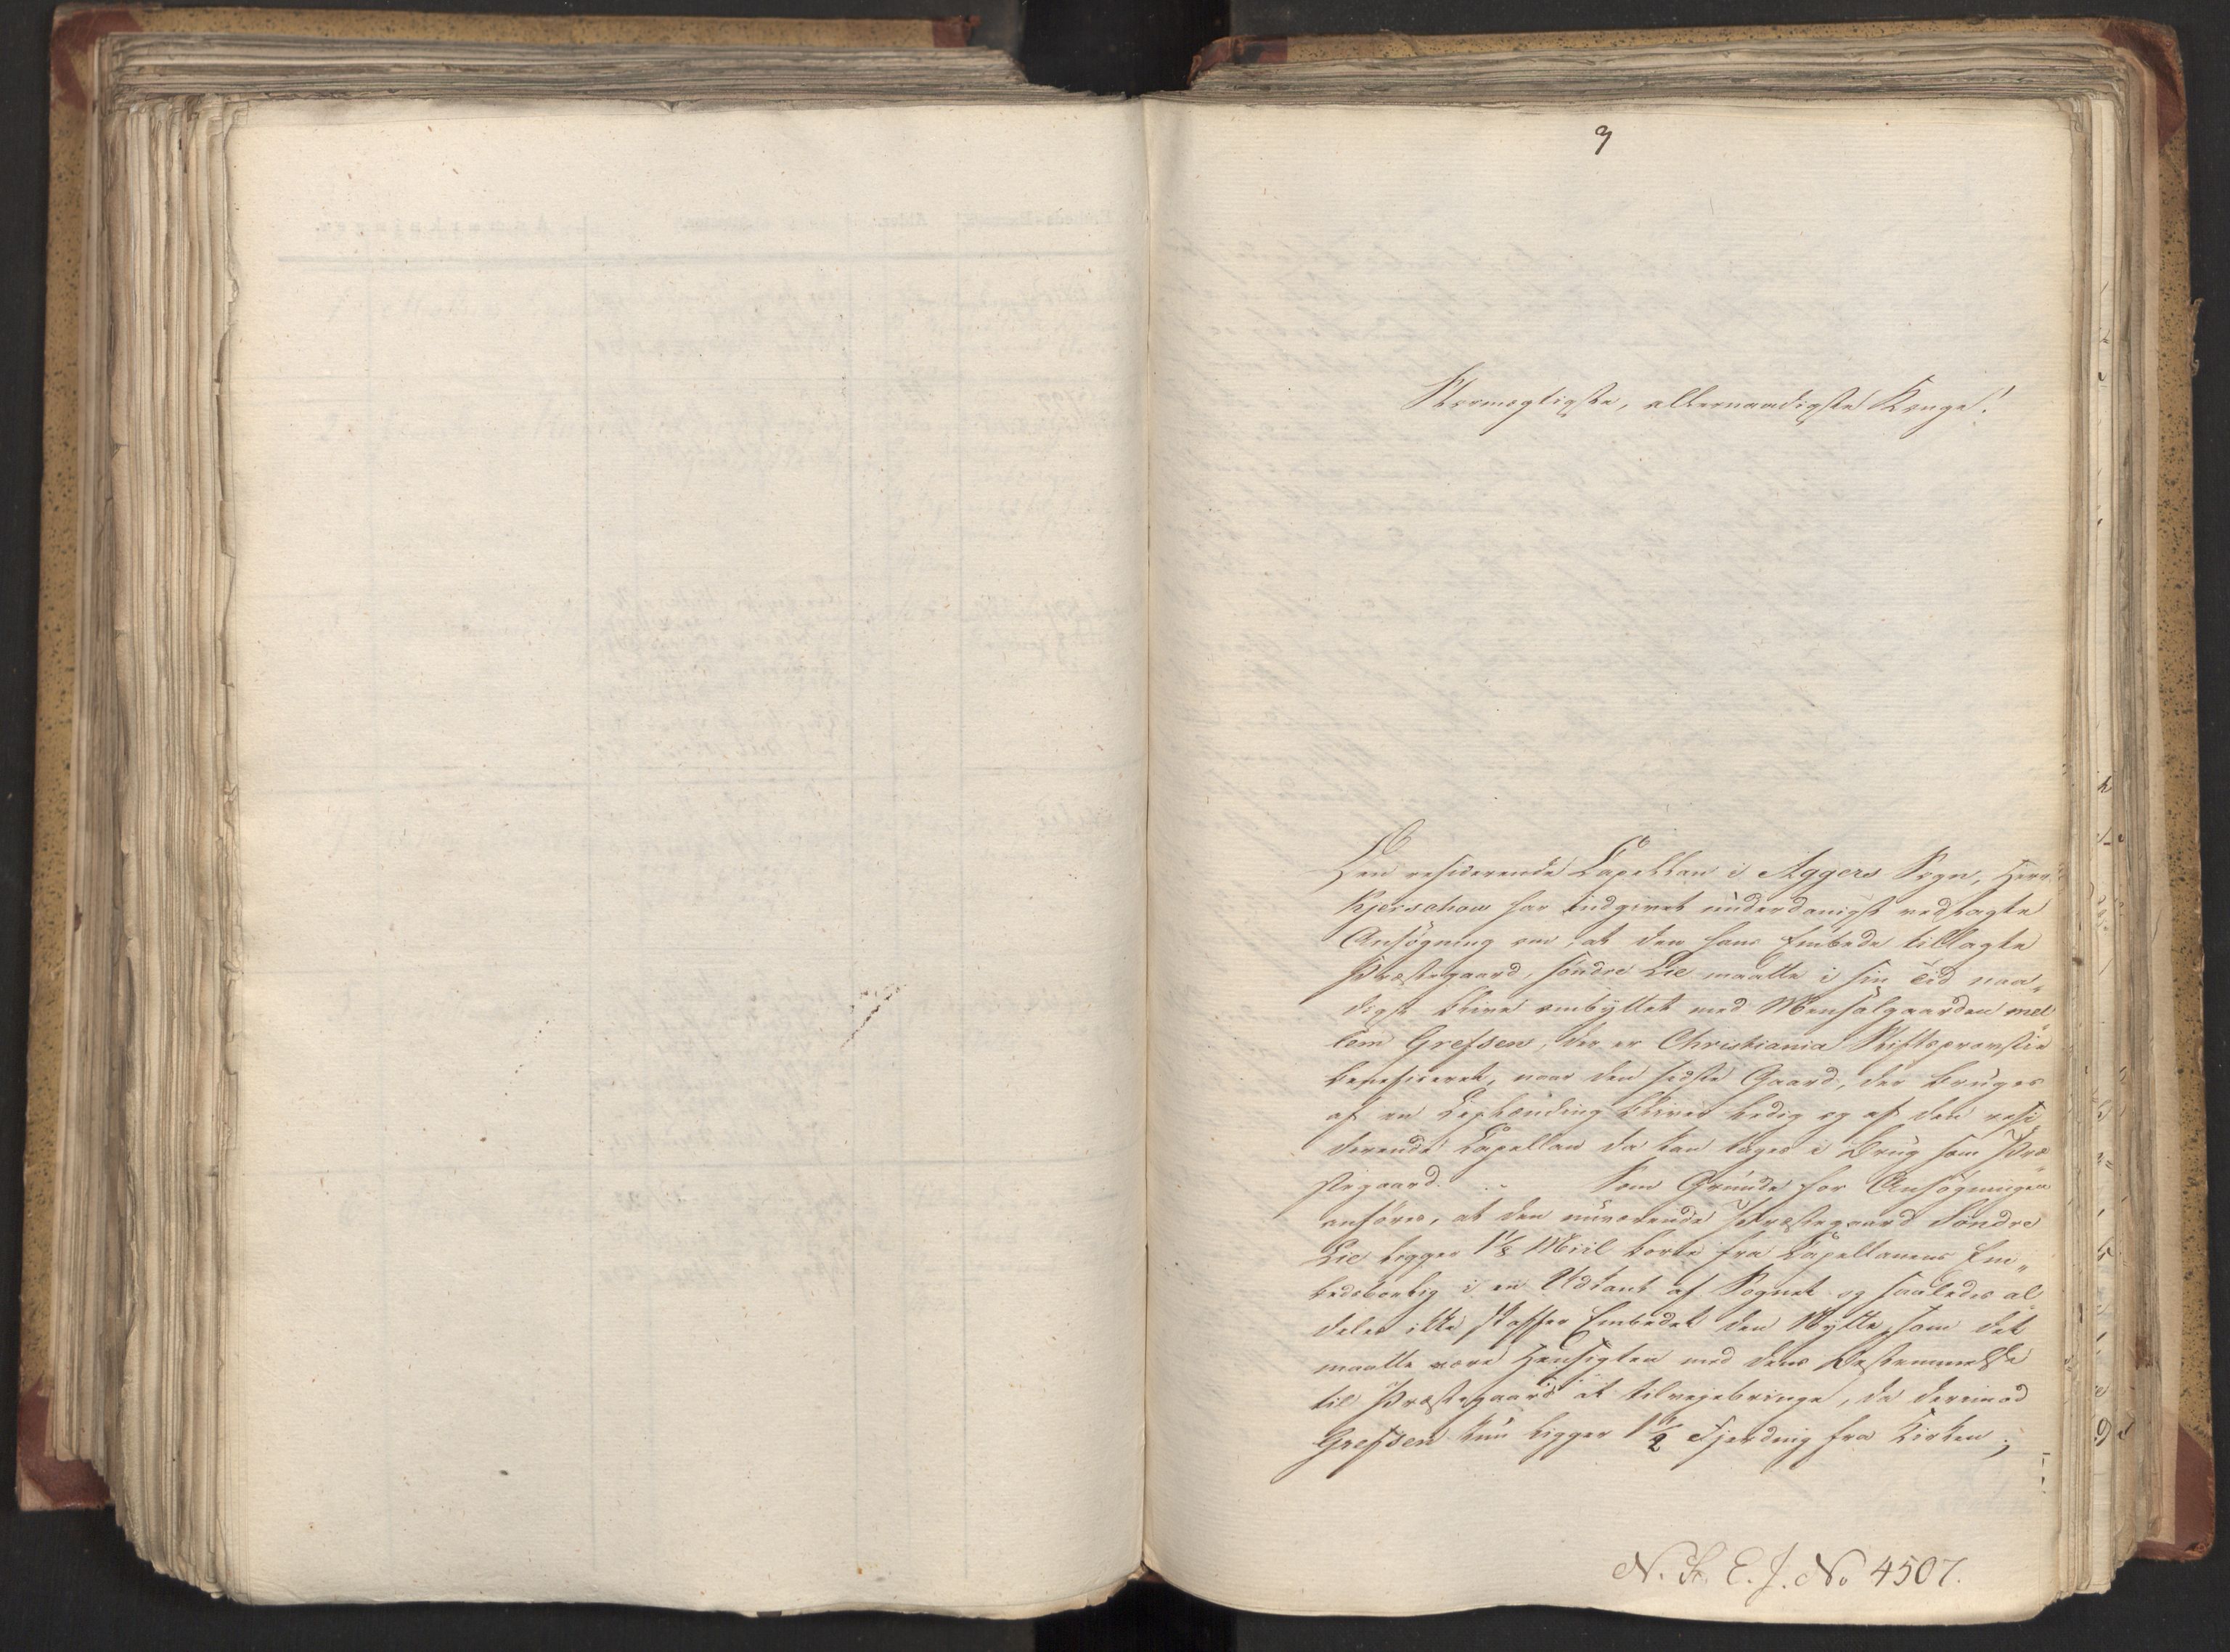 9
Stormægtigste, allernaadigste Konge!
Den residerende Capellan i Aggers Sogn, Herr
Kjerschow har indgivet underdanigst vedlagte
Ansøgning om, at den hans Embede tillagte
Præstegaard, søndre Lie maatte i sin Tid naa„
digst blive ombyttet med Mensalgaarden mel„
lem Grefsen, der er Christiania Stiftsprovstie
beneficeret, naar den sidste Gaard, der bruges
af en Leylænding bliver ledig og af den resi„
derende Capellan da kan tages i Brug som Præ„
stegaard. Som Grunde for Ansøgningen
anføres, at den nuværende Præstegaard Søndre
Lie ligger 1⅛ Miil borte fra Capellanens Em„
bedsbolig i en Udkant af Sognet og saaledes al„
deles ikke skaffer Embedet den Nytte, som det
maatte være Hensigten med dens Bestemmelse
til Præstegaard at tilvejebringe, da derimod
Grefsen kun ligger 1½ Fjerding fra Kirken;
N. K. E. J. No 4507.